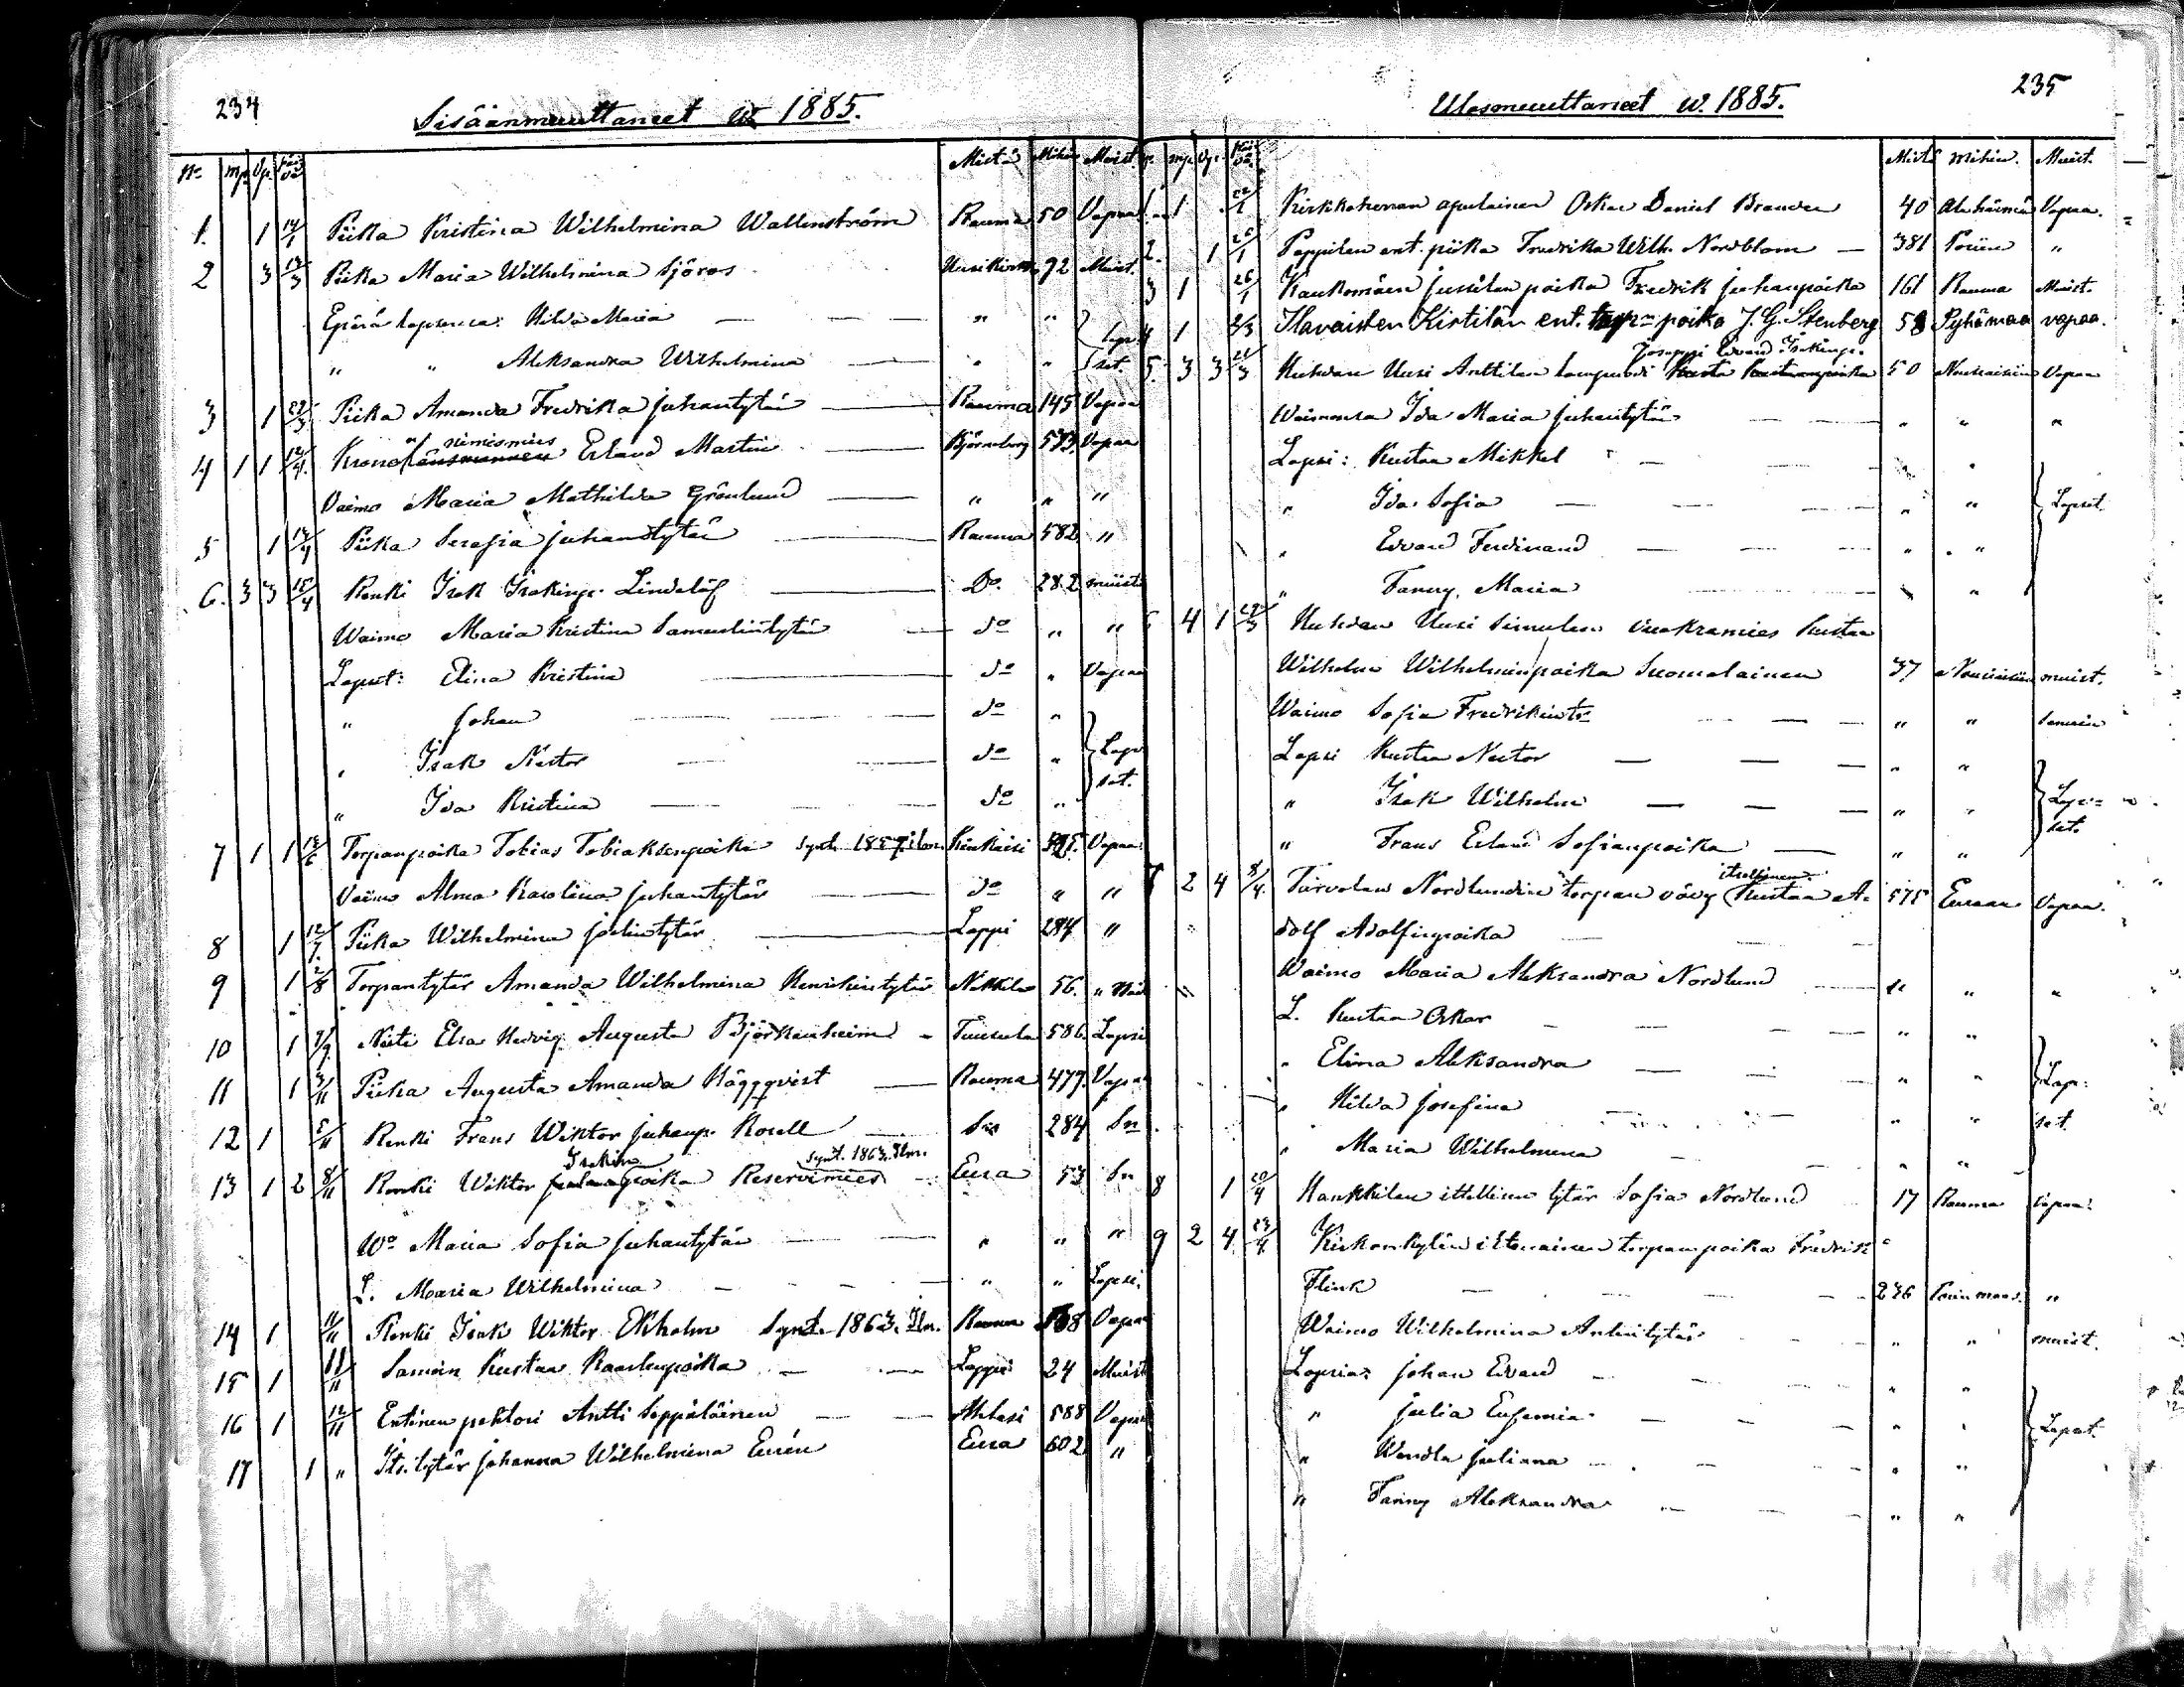 234
Sisäänmuuttaneet w. 1885.
No mp. Vp. päivä Mistä Mihin Muist.
1. 1 14/1 Piika Kristina Wilhelmina Wallenström Rauma 50 Vapaa
2 3 13/3 Piika Maria Wilhelmina Sjöros Uusikirkko 92 Muist.
Epärä lapsensa: Hilda Maria — — " " } Lap-
" " Aleksandra Wilhelmina — " " set.
3 1 29/3 Piika Amanda Fredrika Juhantytär — Rauma 145 Vapaa
nimismies
4 1 1 12/4 Kronolänsmannen Erland Martin — Björneborg 583 Vapaa
Vaimo Maria Mathilda Grönlund — " " "
5 1 14/4 Piika Serafia Juhantytär — Rauma 582 "
6. 3 3 15/4 Renki Isak Isakinp. Lindelöf — Do. 282 muist.
Waimo Maria Kristina Samuelintytär — do " "
Lapset: Elina Kristina — do " Vapaa
" Johan — do "
" Isak Nestor — do " } Lap-
" Ida Kristina — do " set.
7 1 1 Torpanpoika Tobias Tobiaksenpoika synt. 1857 ilm. Kiukaisi Vapaa
Vaimo Alma Karolina Juhantytär — do " "
8 1 12/7 Piika Wilhelmina Joelintytär — Lappi 284 "
9 1 2/8 Torpantytär Amanda Wilhelmina Henrikintytär Nakkila 56. "
10 1 7/9 Neiti Elsa Hedvig Augusta Björkenheim - Tuusula 586. Lapsi
11 1 3/11 Piika Augusta Amanda Häggqvist — Rauma 479. Vapaa
12 1 5/11 Renki Frans Wiktor Juhanp. Rosell — Sn 284 Sn
Isakin synt. 1863. Ilm.
13 1 2 8/11 Renki Wiktor poika Reservimies — Eura 53 Sn
Wo Maria Sofia Juhantytär — " " "
L. Maria Wilhelmina — " " Lapsi.
14 1 11/11 Renki Isak Wiktor Ekholm Synt. 1863. Ilm. Rauma Vapaa
15 1 11/11 Samoin Kustaa Kaarlenpoika — Lappi 24 Muist
16 1 12/11 Entinen pehtori Antti Seppäläinen — Ahlasi 588 Vapaa
17 1 " Its. tytär Johanna Wilhelmina Eurén Eura 602 "
235
Ulosmuuttaneet w. 1885.
mp. Vp. päivä Mistä Mihin. Muist.
1 22/1 Kirkkoherran apulainen Oskar Daniel Brander 40 Alahärmä Vapaa.
2. 1 26/1 Pappilan ent. piika Fredrika Wilh. Nordblom — 381 Poriin "
3 1 26/1 Kaukomäen Jussilan poika Fredrik Juhanpoika 161 Rauma Muist.
4 1 2/3 Ilavaisten Kirtilän ent. torp:n poika J. G. Stenberg 58 Pyhämaa vapaa.
Joseppi Edvard Isakinp.
5. 3 3 21/3 Huhdan Uusi Anttilan lampuodi Kusta Kustaanpoika 50 Nousiaisiin Vapaa
Waimonsa Ida Maria Juhantytär — " " "
Lapsi: Kustaa Mikkel — " "
" Ida Sofia — " " } Lapset.
" Edvard Ferdinand — " "
" Fanny Maria — " "
4 1 29/3 Huhdan Uusi Simulan vuokramies Kustaa
Wilhelm Wilhelminpoika Suomalainen 37 Nousiaisiin muist.
Waimo Sofia Fredrikintr — " " Samoin
Lapsi Kustaa Nestor — " "
" Isak Wilhelm — " " } Lap-
" Frans Erland Sofianpoika — " " set.
itsellinen
2 4 8/4 Turvolan Nordlundin torpan vävy Kustaa A- 575 Euraan Vapaa.
dolf Adolfinpoika
Waimo Maria Aleksandra Nordlund — " " "
L. Kustaa Oskar — " "
" Elina Aleksandra — " " } Lap-
" Hilda Josefina — " " set.
" Maria Wilhelmina — " "
8 1 20/4 Hankkilan itsellisen tytär Sofia Nordlund 17 Rauma Vapaa.
9 2 4 23/4 Kirkonkylän torpanpoika Fredrik
Flink — 236 "
Waimo Wilhelmina Antintytär " " muist.
Lapsia: Johan Edvard — " "
" Julia Eufemia — " " } Lapset.
" Wendla Juliana — " "
" Fanny Aleksandra — " "